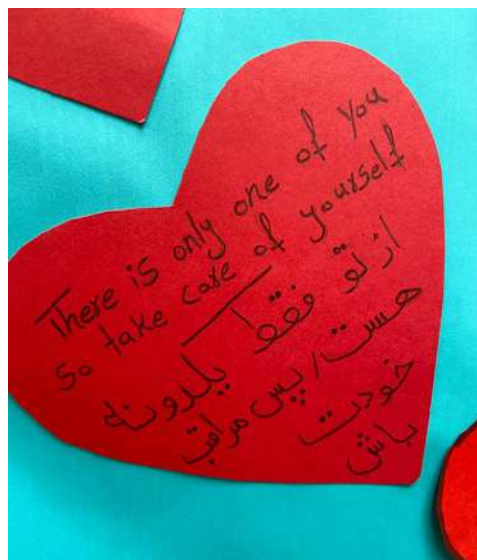 There is only one of you
so take care of yourself
از تو فقط یدونه
هست / پس مراقب
خودت
باش